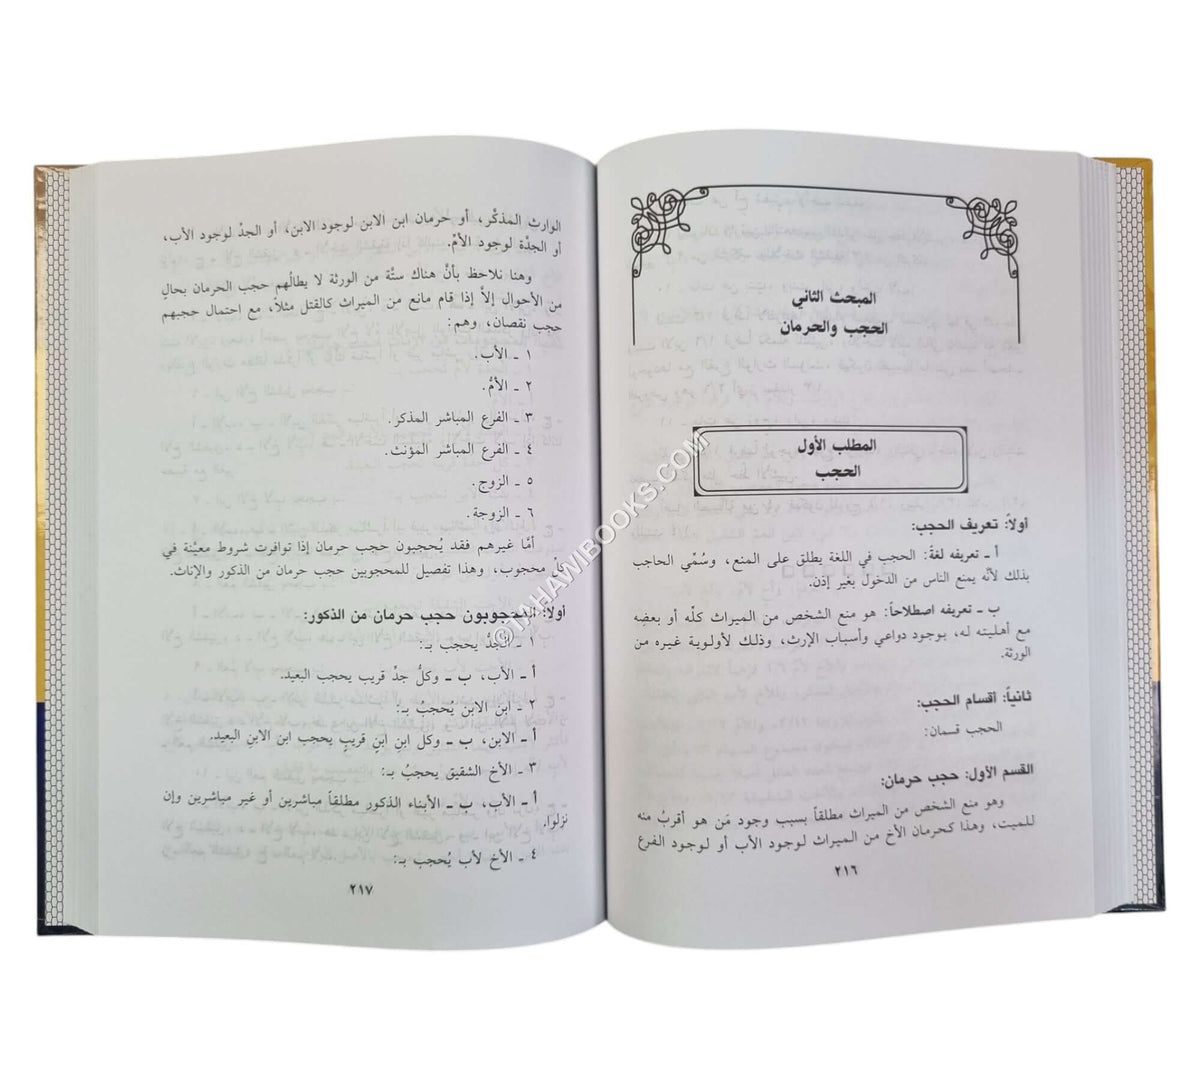 المبحث الثاني
الحجب والحرمان
المطلب الأول
الحجب
أولاً: تعريف الحجب:
أ ـ تعريفه لغة: الحجب في اللغة يطلق على المنع، وسُمّي الحاجب
بذلك لأنّه يمنع الناس من الدخول بغير إذن.
ب ـ تعريفه اصطلاحاً: هو منع الشخص من الميراث كلّه أو بعضه
مع أهليته له، بوجود دواعي وأسباب الإرث، وذلك لأولوية غيره من
الورثة.
ثانياً: أقسام الحجب:
الحجب قسمان:
القسم الأول: حجب حرمان:
وهو منع الشخص من الميراث مطلقاً بسبب وجود مَن هو أقربُ منه
للميت، وهذا كحرمان الأخ من الميراث لوجود الأب أو لوجود الفرع
٢١٦
الوارث المذكَّر، أو حرمان ابن الابن لوجود الابن، أو الجدّ لوجود الأب،
أو الجدّة لوجود الأمّ.
وهنا نلاحظ بأنَّ هناك ستَّة من الورثة لا يطالُهم حجب الحرمان بحالٍ
من الأحوال إلاَّ إذا قام مانع من الميراث كالقتل مثلاً، مع احتمال حجبهم
حجب نقصان، وهم:
١ ـ الأب.
٢ ـ الأمّ.
٣ ـ الفرع المباشر المذكر.
٤ ـ الفرع المباشر المؤنث.
٥ ـ الزوج.
٦ ـ الزوجة.
أمَّا غيرهم فقد يُحجبون حجب حرمان إذا توافرت شروط معيَّنة في
كلّ محجوب، وهذا تفصيل للمحجوبين حجب حرمان من الذكور والإناث.
أولاً: المحجوبون حجب حرمان من الذكور:
١ ـ الجدُّ يحجب بـ:
أ ـ الأب، ب ـ وكلُّ جدٍّ قريب يحجب البعيد.
٢ ـ ابن الابن يُحجبُ بـ:
أ ـ الابن، ب ـ وكل ابنِ ابنٍ قريبٍ يحجب ابن الابنِ البعيد.
٣ ـ الأخ الشقيق يحجبُ بـ:
أ ـ الأب، ب ـ الأبناء الذكور مطلقاً مباشرين أو غير مباشرين وإن
نزلوا.
٤ ـ الأخ لأب يُحجبُ بـ:
٢١٧
©TAHAWIBOOKS.COM